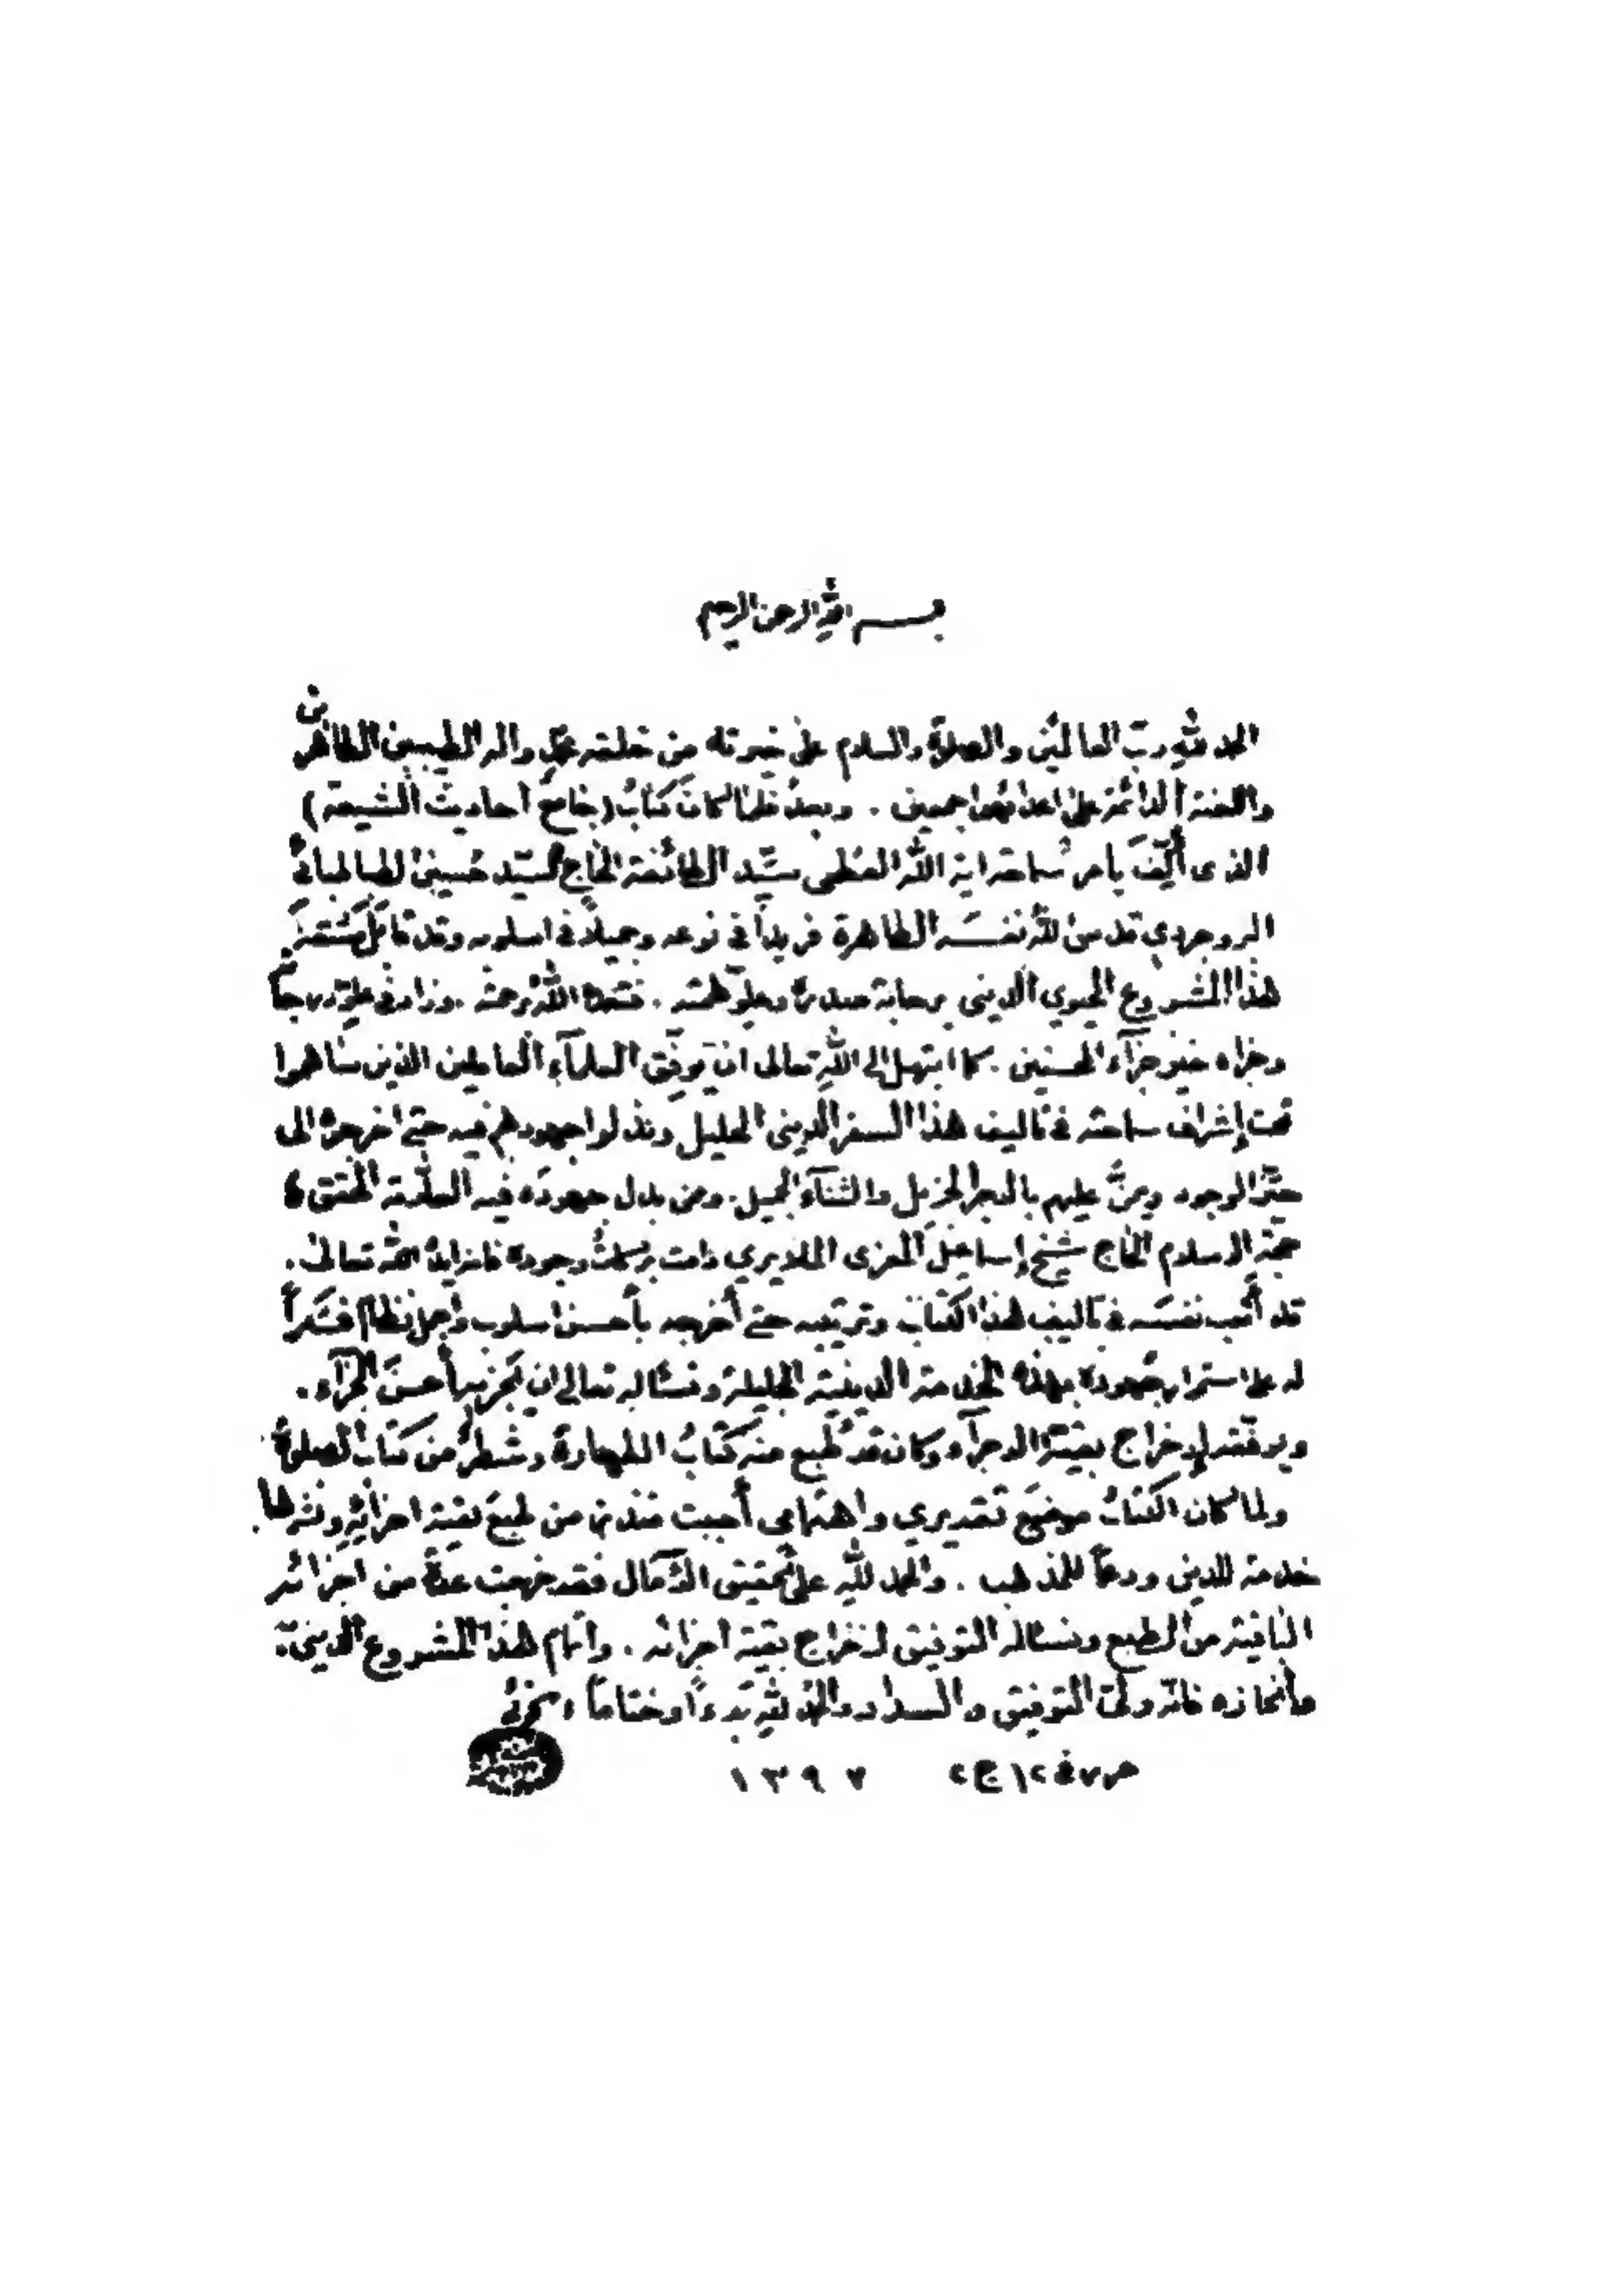 بسم الله الرحمن الرحيم
الحمد لله ربّ العالمين والصلاة والسلام على خيرته من خلقه محمّد واله الطيبين الطاهرين
واللعنة الدائمة على اعدائهم اجمعين . وبعد فلمّا كان كتابُ (جامع أحاديث الشيعة)
الذى أُلّفَ بأمر سماحة اية الله العظمى سيّد الطائفة الحاج السيّد حسين الطباطبائي
البروجردي قدس الله نفسَه الطاهرة فريداً في نوعه وجميلاً في اسلوبه وقد
هذا المشروع الحيوي الديني برحابة صدره وعلوّ همته . فتغمده اللهُ برحمته . وزاد في علوّ درجاته
وجزاه خير جزآء المحسنين . كما ابتهل الى اللهِ تعالى ان يوفّق العلمآء العاملين الذين ساهموا
تحت إشراف سماحته في تأليف هذا السفر الديني الجليل وبذلوا جهودهم فيه حتى اخرجوه الى
حيّز الوجود ويمنَّ عليهم بالاجر الجزيل والثنآء الجميل . وممن بذل جهودَه فيه العلّامة المحقق ،
حجة الاسلام الحاج شيخ إسماعيل المعزى الملايري دامت بركاتُ وجوده فانه ايّده الله تعالى .
قد أتعب نفسَه في تأليف هذا الكتاب وترتيبه حتى أخرجه بأحسن اسلوب وأجمل نظام فشكراً
له على استمرار جهوده بهذه الخدمة الدينية الجليلة ونسأله تعالى ان يجزيه أحسنَ الجزآء .
ويوفقه لإخراج بقيّة الاجزآء وكان قد طُبع منه كتابُ الطهارة وشطرٌ من كتاب الصلوة .
ولما كان الكتابُ موضعَ تقديري واهتمامي أحببت من طبع بقية اجزائهِ ونشرها .
خدمة للدين ودعماً للمذهب . والحمد للهِ على تحقيق الآمال فقد خرجت عدةٌ من اجزائه
الباقية من الطبع ونسأله التوفيق لاخراج بقيّة اجزائه . واتمام هذا المشروع الدينيّ
وانجازه فانه وليّ التوفيق والسداد والحمد للهِ بَدءاً وختاماً ،
في ١٢ ج٢ ١٣٩٧